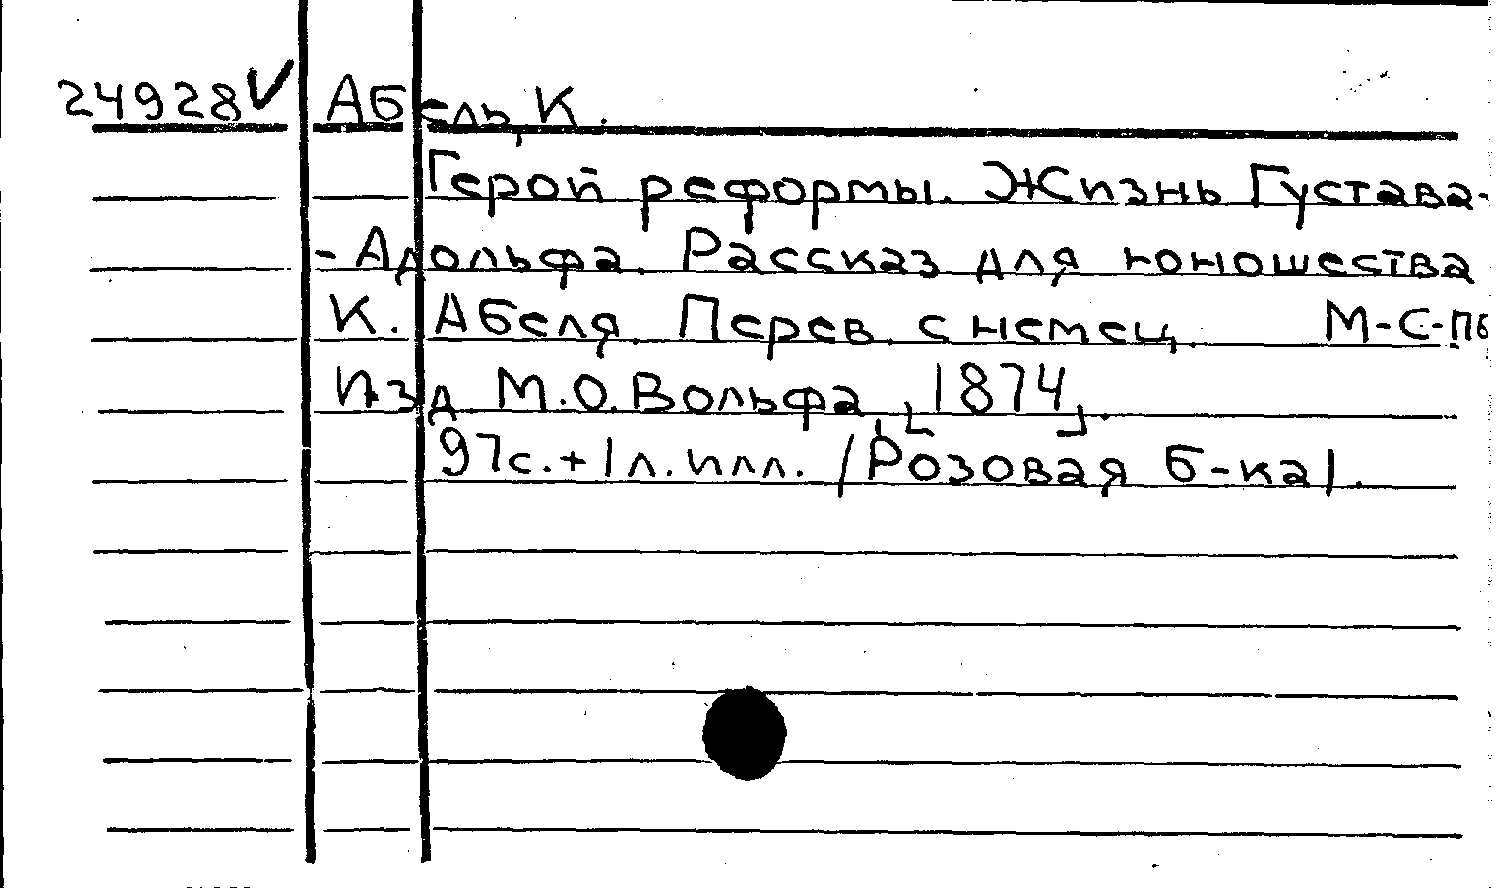 24928 ✓ Абель, К.
Герой реформы. Жизнь Густава-
-Адольфа. Рассказ для юношества
К. Абеля. Перев. с немец. М-С-Пб
Изд. М.О. Вольфа, [1874].
97с.+1л.илл. /Розовая б-ка/.